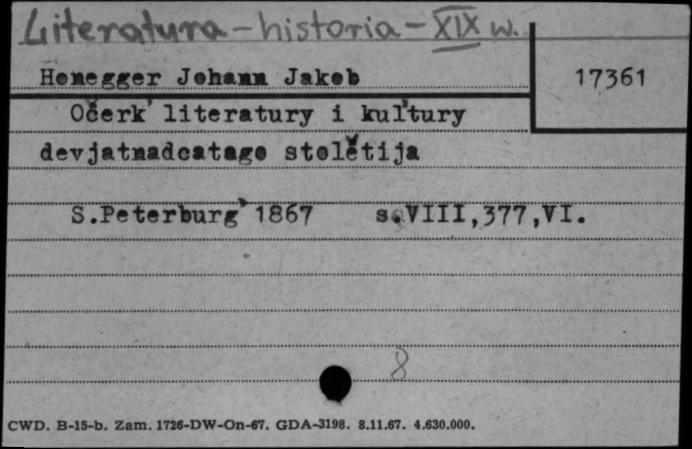 Literatura - historia - XIX w.
Honegger Johann Jakob
17361
Očerk' literatury i kul'tury
devjatnadcatago stolětija
S.Peterburg' 1867 s.VIII,377,VI.
8
CWD. B-15-b. Zam. 1726-DW-On-67. GDA-3198. 8.11.67. 4.630.000.